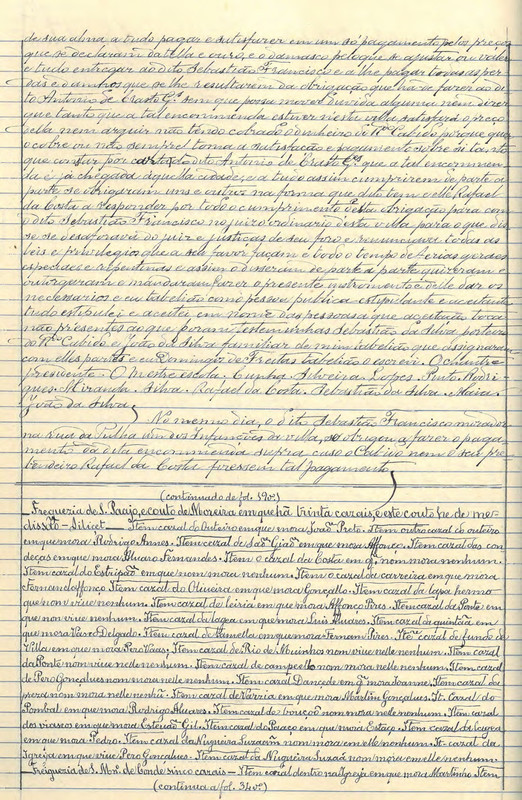 de sua alma a tudo pagar e satisfazer em um só pagamento pelos preços
que se declaram da tella e ouro, e o damasco pelo que se ajustar ou valer
e tudo entregar ao dito Sebastião Francisco e a lhe pagar todas as per-
das e damnos que se lhe resultarem da obrigação que ha de fazer ao di-
to Antonio de Crasto Gs sem que possa mover duvida alguma nem dizer
que tanto que a tal encommenda estiver nesta villa satisfará o preço
della nem arguir não tendo cobrado o dinheiro do Rdo Cabido porque que
o cobre ou não sempre toma a satisfação e pagamento sobre si tanto
que constar por carta do dito Antonio de Crasto Gs que a tal encommen-
da é já chegada áquella cidade; e a tudo assim cumprirem de parte a
parte se obrigaram uns e outros na forma que dito tem e elle Rafael
da Costa a responder por todo o cumprimento desta obrigação para com
o dito Sebastião Francisco no juizo ordinario desta villa para o que dis-
se se desaforava do juiz e justiças de seu foro e renunciava todas as
leis e privilegios que a seu favor façam e todo o tempo de ferias geraes
especiaes e repentinas e assim o disseram se parte a parte quizeram e
outorgaram e mandaram fazer o presente instrumento e delle dar os
necessarios e eu tabelião como pessoa publica estipulante e aceitante
tudo estipulei e aceitei em nome das pessoas a que aceitação toca
não presentes ao que foram testeminhas Sebastião da Silva porteiro
do Rdo Cabido e João da Silva familiar de mim tabelião que assignaram
com elles partes e eu Domingos de Freitas tabelião o escrevi. O chantre
presidente. O Mestre escola. Cunha. Silveira. Lopes. Pinto. Rodri-
gues. Miranda. Silva. Rafael da Costa. Sebastião da Silva. Maia.
João da Silva
No mesmo dia, o dito Sebastião Francisco morador
na rua da Tulha dos Infanções da villa, se obrigou a fazer o paga-
mento da dita encommenda supra, caso o Cabido nem o seu pre-
bendeiro Rafael da Costa fizessem tal pagamento
(continuado de fol. 59vo)
Freguezia de S. Paaio, e couto de Moreira em que ha trinta cazais, e este couto he de me-
dissão - Silicet. Item cazal do Outeiro em que mora Joaõ Preto. Item outro cazal do outeiro
em que mora Rodrigo Annes. Item cazal de São Giaõ em que mora Affonço. Item cazal das con-
deças em que mora Alvaro Fernandes. Item o cazal da Costa em q. nom mora nenhum.
Item cazal do Estripão em que nom mora nenhum. Item o cazal da carreira em que mora
Fernand'Affonço. Item cazal do Oliveira em que mora Gonçallo. Item cazal da lapa hermo
que nom vive nenhum. Item cazal de leiria em que mora Affonço Pires. Item cazal de Ponte em
que non vive nenhum. Item cazal da lagea em que mora Luis Alvares. Item cazal da quintãa em
que mora Vasco Delgado. Item cazal de Pumella em que mora Fernam Pires. Itõ cazal de fundo de
Villa em que mora Pero Vaas. Item cazal de Rio de Muinhos nom vive nelle nenhum. Item cazal
da Ponte nom vive nelle nenhum. Item cazal de campello nom mora nelle nenhum. Item cazal
de Pero Gonçalves nom mora nelle nenhum. Item cazal Dançede em q. mora Joanne. Item cazal da
pera nom mora nelle nenhũ. Item cazal de Varria em que mora Martim Gonçalves. It. Cazal do
Pombal em que mora Rodrigo Alvares. Item cazal do bouçoõ nom mora nelle nenhum. Item cazal
dos viascos em que mora Estevaõ Gil. Item cazal do Paaço em que mora Estaço. Item cazal da Lagea
em que mora Pedro. Item cazal da Nugueira Suzaãa nom mora em elle nenhum. It. cazal da
Igreja em que vive Pero Gonçalves. Item cazal da Nugueira Suzaã nom mora em elle nenhum.
Freguezia de S. Mno de Conde sinco cazais - Item cazal dentro na Igreja em que mora Martinho. Item
(continua a fol. 34vo)